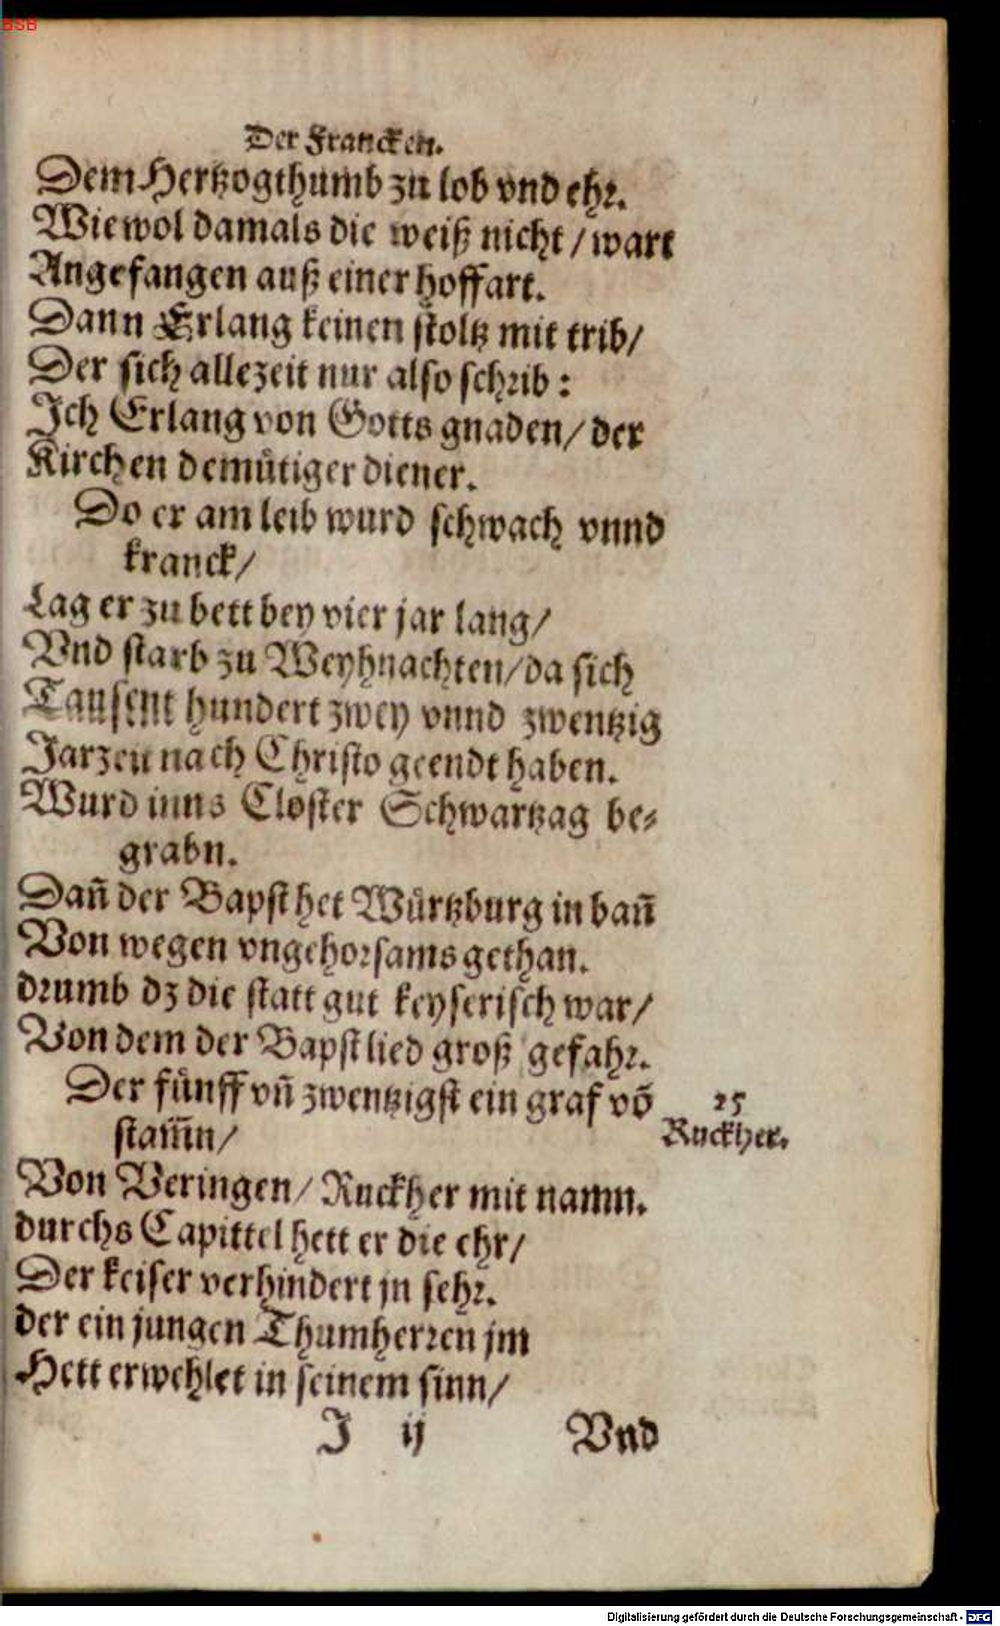 BSB
Der Francken.
Dem Hertzogthumb zu lob vnd ehr.
Wiewol damals die weiß nicht / wart
Angefangen auß einer hoffart.
Dann Erlang keinen stoltz mit trib/
Der sich allezeit nur also schrib:
Ich Erlang von Gotts gnaden/ der
Kirchen demütiger diener.
Do er am leib wurd schwach vnnd
kranck/
Lag er zu bett bey vier jar lang/
Vnd starb zu Weyhnachten/ da sich
Tausent hundert zwey vnnd zwentzig
Jarzeit nach Christo geendt haben.
Wurd inns Closter Schwartzag be-
grabn.
Dañ der Bapst het Würtzburg in bañ
Von wegen vngehorsams gethan.
drumb dz die statt gut keyserisch war/
Von dem der Bapst lied groß gefahr.
Der fünff vñ zwentzigst ein graf võ
stam̃n/
25
Ruckher.
Von Veringen/ Ruckher mit namn.
durchs Capittel hett er die ehr/
Der keiser verhindert jn sehr.
der ein jungen Thumherren jm
Hett erwehlet in seinem sinn/
J ij
Vnd
Digitalisierung gefördert durch die Deutsche Forschungsgemeinschaft - DFG